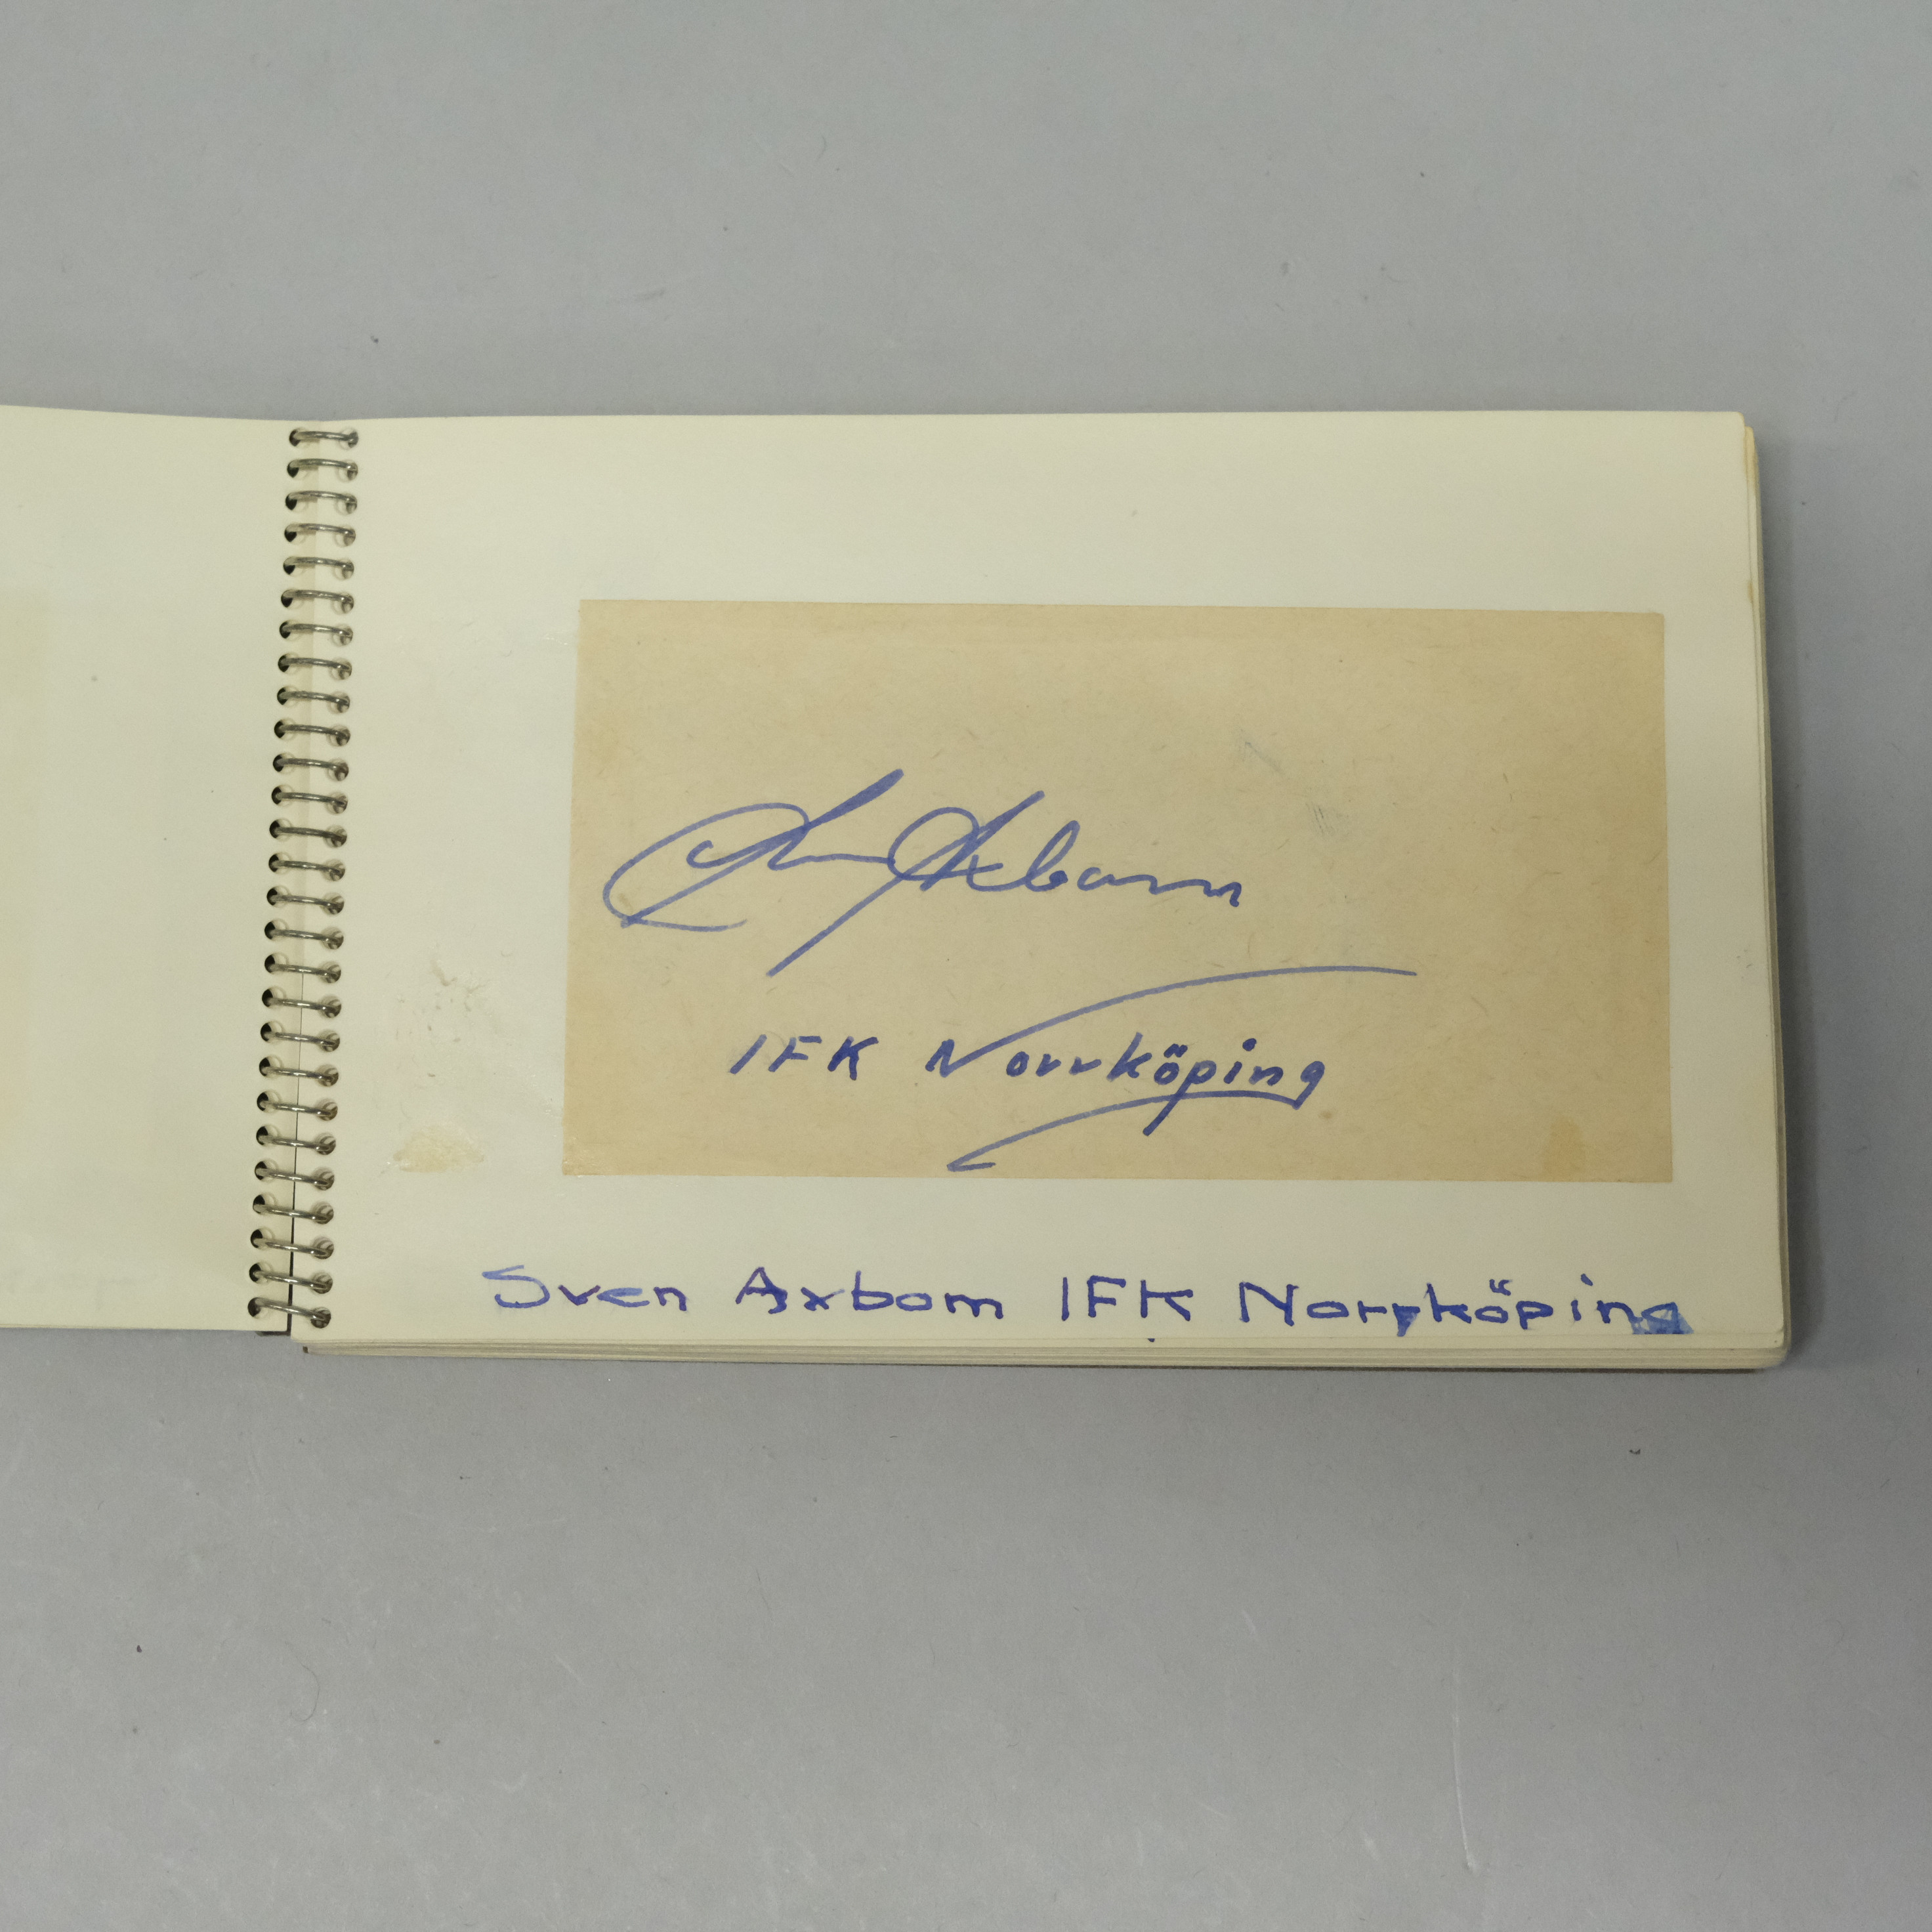 Sven Axbom
IFK Norrköping
Sven Axbom IFK Norrköping